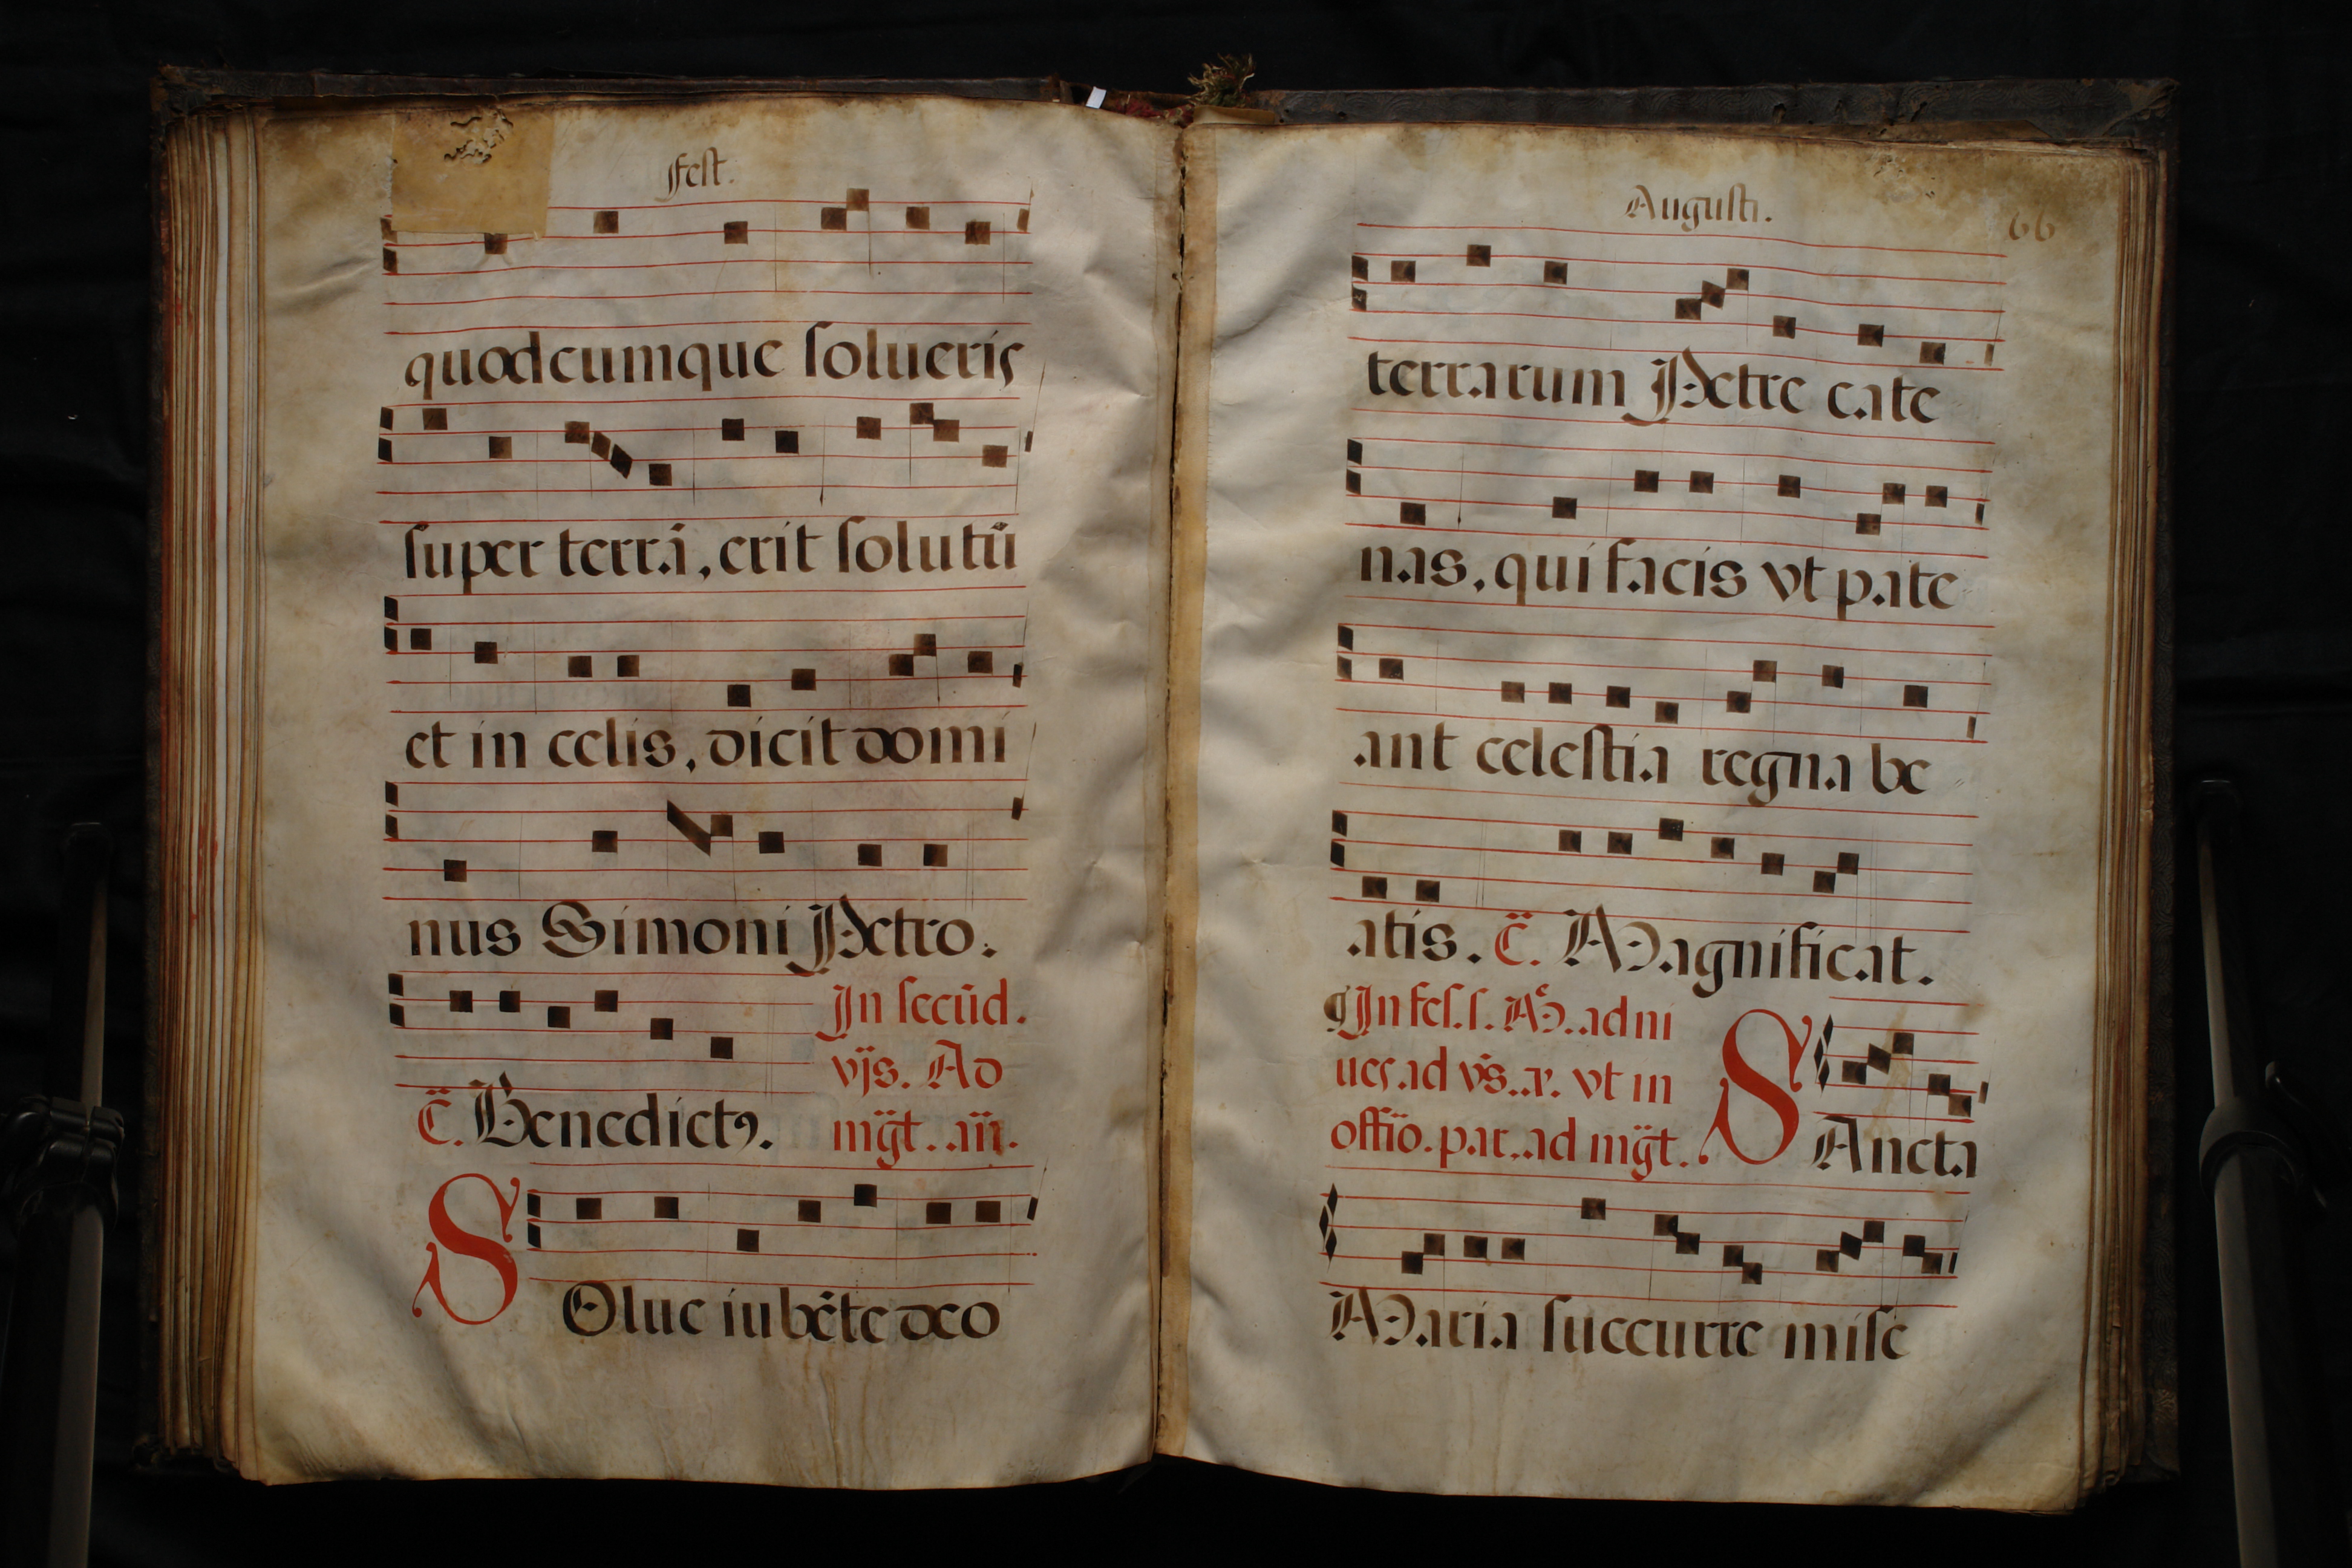 Fest.
quodcumque solueris
super terrā, erit solutū
et in celis, dicit domi
nus Simoni Petro.
In secūd.
vīs. Ad
C̄. Benedictꝰ. mḡt. añ.
S
Olue iubēte deo
Augusti.
66
terrarum Petre cate
nas, qui facis vt pate
ant celestia regna be
atis. C̄. Magnificat.
¶ In fes. s. Mᵉ. ad ni
ues. ad vs̄. r. vt in
offīo. par. ad mḡt.
S
Ancta
Maria succurre mise